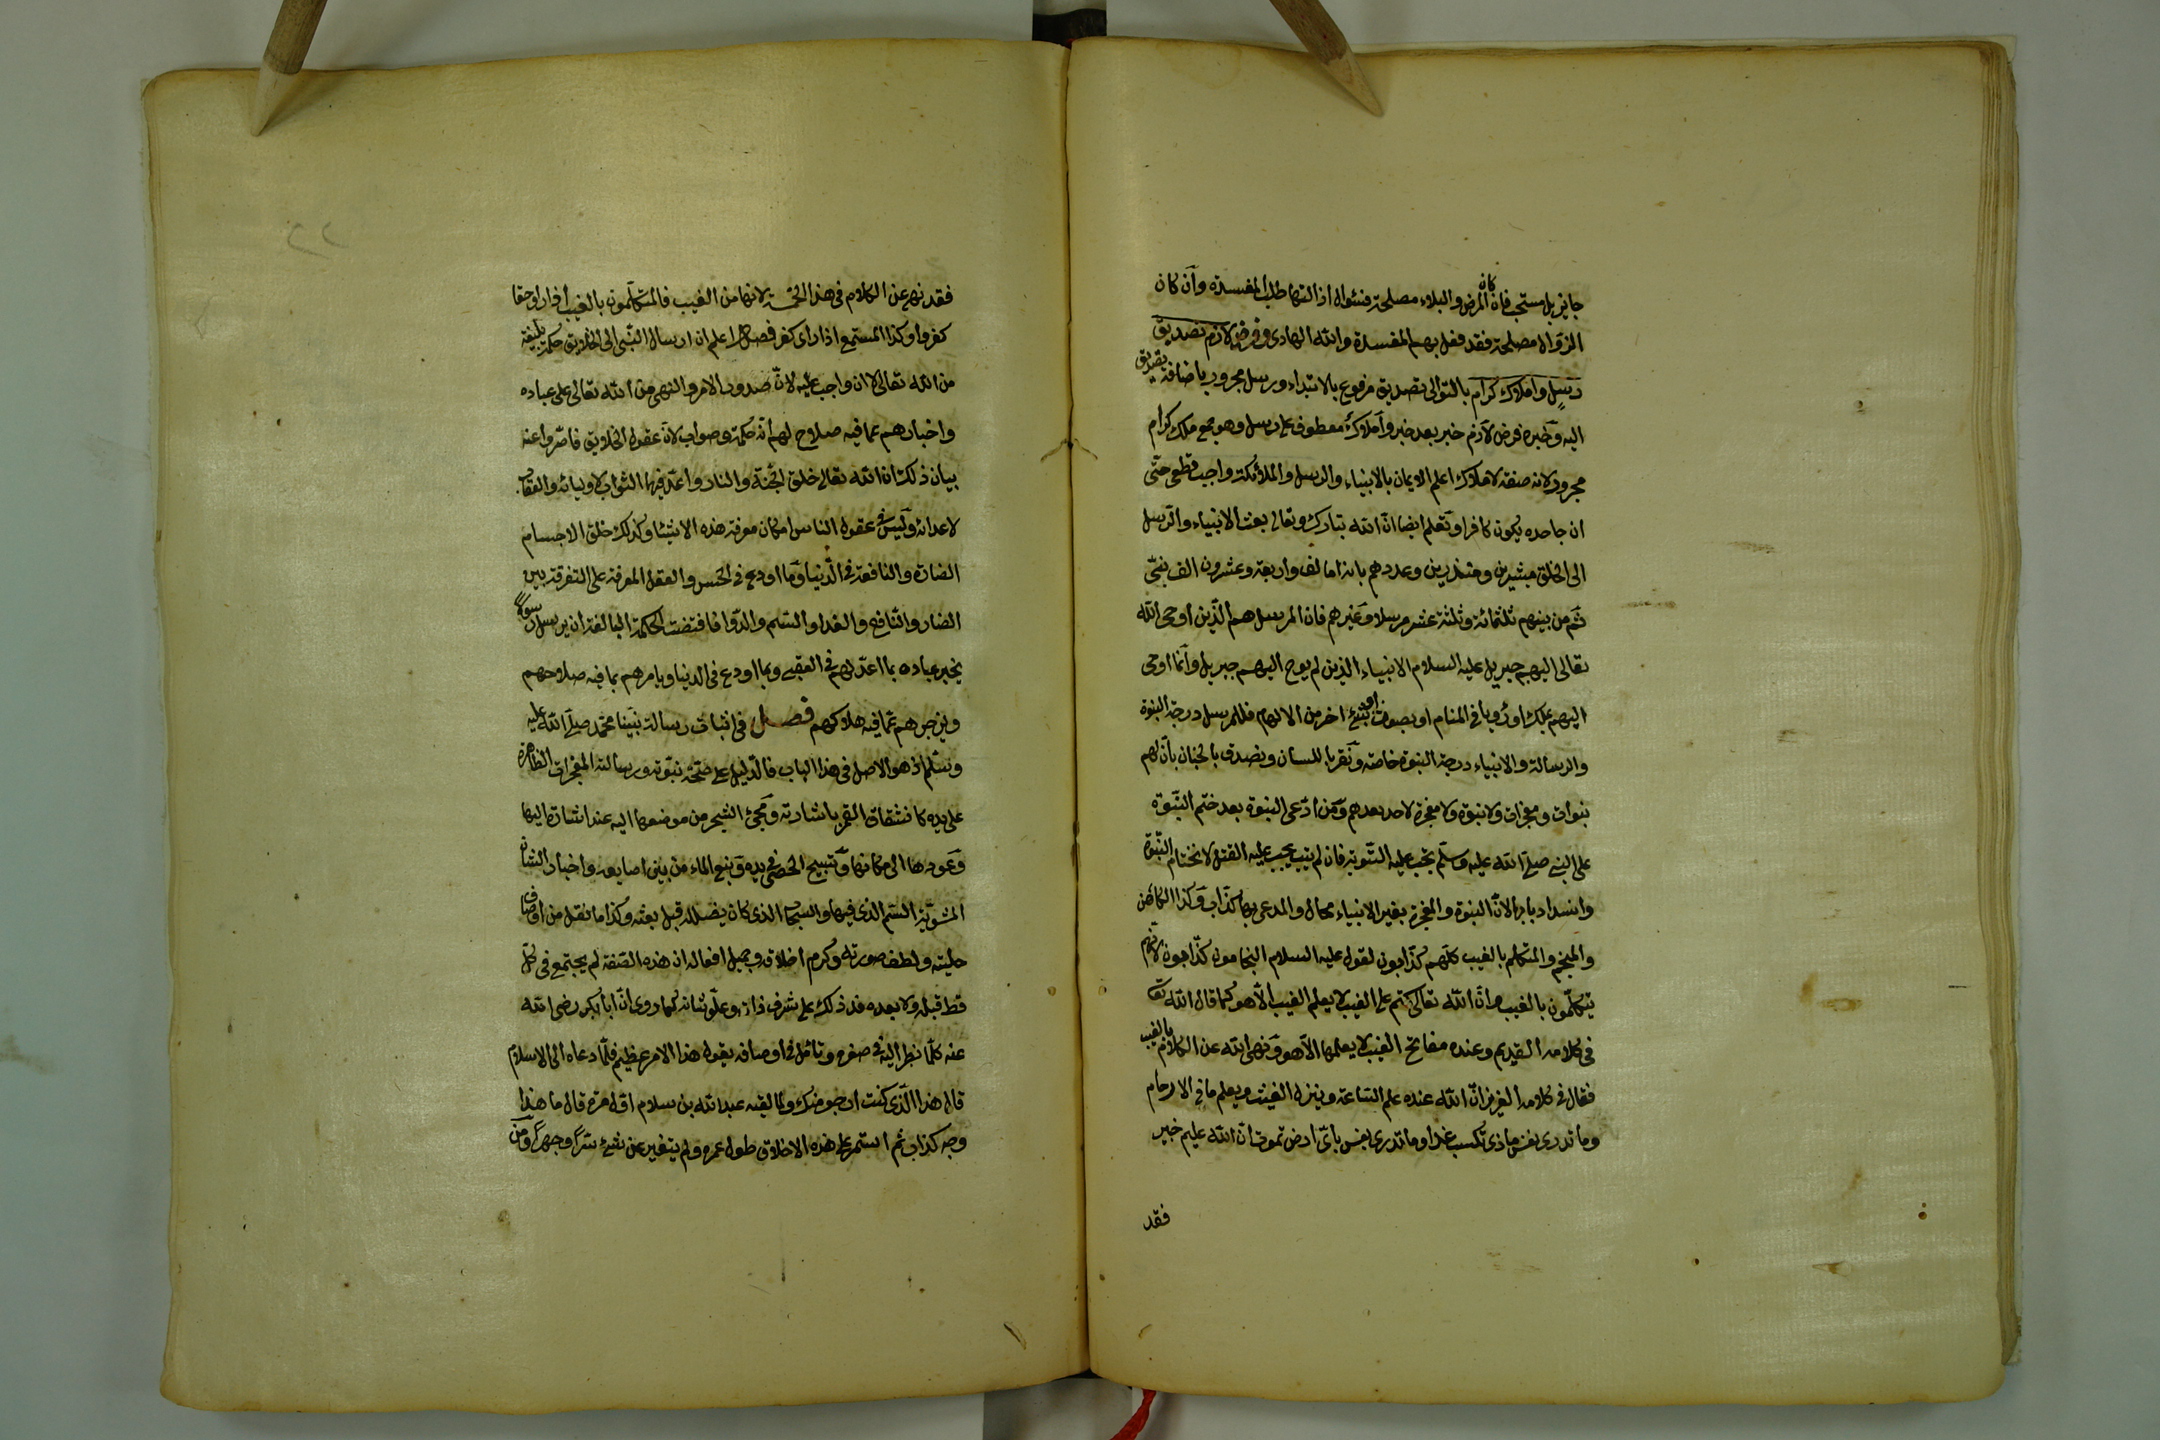 جايز بل مستحب فان كان المرض والبلاء مصلحة فسئواله ازالتها طلب المفسدة وان كان
الزواله مصلحة فقد فعل بهم المفسدة والله الهادى وفرض لازم تصديق
رسل واملاك كرام بالتوالى تصديق مرفوع بالابتداء ورسل مجرور باضافة تصديق
اليه وخبره فرض لازم خبر بعد خبر واملاك معطوف على رسل وهو جمع ملك كرام
مجرور لانه صفة لاملاك اعلم الايمان بالانبياء والرسل والملائكة واجب قطعى حتى
ان جاحده يكون كافرا وتعلم ايضا ان الله تبارك وتعالى بعث الانبياء والرسل
الى الخلق مبشرين ومنذرين وعددهم بانه اما الف واربعة وعشرون الف نبى
ثم من بينهم ثلثمائة وثلثة عشر مرسلا وغيرهم فان المرسل هم الذين اوحى الله
تعالى اليهم جبريل عليه السلام الانبياء الذين لم يوح اليهم جبريل وانما اوحى
اليهم بملك اورؤيا فى المنام او بصوت او بشئ اخر من الالهام فللمرسل درجة النبوة
والرسالة والانبياء درجة النبوة خاصة وتقر باللسان وتصدق بالجنان بان لهم
نبوات ومعجزات ولا نبوة ولا معجزة لاحد بعدهم ومن ادعى النبوة بعد ختم النبوة
على النبى صلى الله عليه وسلم تجب عليه التوبة فان لم يتب يجب عليه القتل لاختتام النبوة
وانسداد بابها لان النبوة والمعجزة بغير الانبياء محال والمدعى بها كذاب وكذا الكاهن
والمنجم والمتكلم بالغيب كلهم كذابون لقوله عليه السلام النجامون كذابون لانهم
يتكلمون بالغيب وان الله تعالى كتم على الغيب لا يعلم الغيب الا هو كما قال الله تعا
فى كلامه القديم وعنده مفاتح الغيب لا يعلمها الا هو ونهى الله عن الكلام بالغيب
فقال فى كلامه العزيز ان الله عنده علم الساعة وينزل الغيث ويعلم ما فى الارحام
وما تدرى نفس ماذى تكسب غدا وما تدرى نفس باى ارض تموت ان الله عليم خبير
فقد
فقد نهى عن الكلام فى هذا الخمسة لانها من الغيب فالمتكلمون بالغيب
كفروا وكذا المستمع اذا راى كفر فصل اعلم ان ارسال النبى الى الخلايق حكمة بليغة
من الله تعالى لا ان واجب عليه لان صدور الامر والنهى من الله تعالى على عباده
واخبارهم عما فيه صلاح لهم انه حكمة وصواب لان عقول الخلايق قاصر واعنه
بيان ذلك ان الله تعالى خلق الجنة والنار واعد فيها الثواب لاوليائه والعقاب
لاعدائه وليس فى عقول الناس امكان معرفة هذه الاشيا وكذلك خلق الاجسام
الضارة والنافعة فى الدنيا وما اودع فى الحس والعقل المعرفة على التفرقة بين
الضار والنافع والغدا والسم والدوا فاقتضت الحكمة البالغة ان يرسل رسولا
يخبر عباده بما اعد لهم فى العقبى وبما اودع فى الدنيا ويامرهم بما فيه صلاحهم
ويزجرهم عما فيه هلاكهم فصل فى اثبات رسالة نبينا محمد صلى الله عليه
وسلم اذ هو الاصل فى هذا الباب فالدليل على صحة نبوته ورسالته المعجزات الظاهرة
على يده كانشقاق القمر باشارته ومجئ الشجر من موضعها اليه عند اشارته اليها
وعودها الى مكانها وتسبيح الحصى فى يده ونبع الماء من بين اصابعه واخبار الشاة
المشوية السم الذى فيها والسحاب الذى كان يضلله قبل بعثه وكذا ما نقل من اوصاف
حليته ولطف صورته وكرم اخلاقه وجميل افعاله ان هذه الصفة لم يجتمع فى كل
قط قبله ولا بعده فدل ذلك على شرف ذاته وعلو شانه كما روى ان ابا بكر رضى الله
عنه كلما نظر اليه فى صغره وتامل فى اوصافه يقول هذا الامر عظيم فلما دعاه الى الاسلام
قال هذا الذى كنت ارجو منك ولما لقيه عبد الله بن سلام اول مرة قال ما هذا
وجه كذاب ثم استمر على هذه الاخلاق طول عمره ولم يتغير عن شئ سرا وجهرا ومن